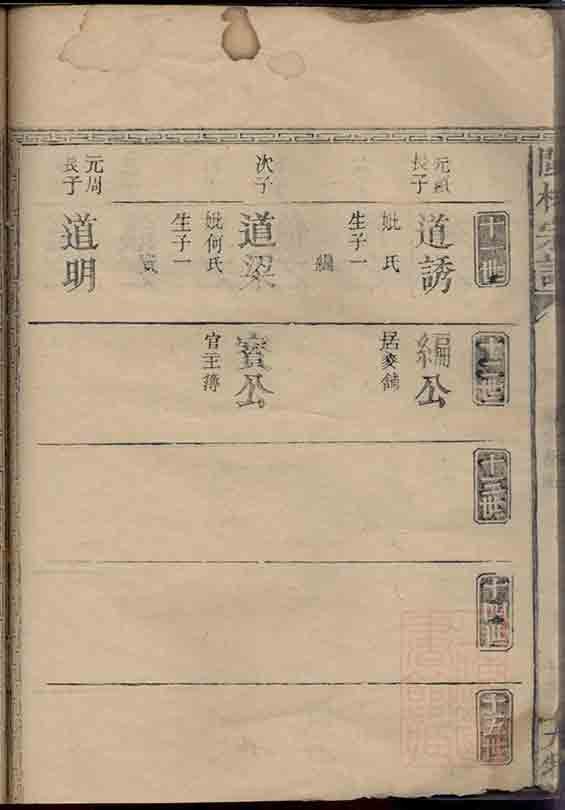 十一世
元
長子
道誘
妣 氏
生子一
編
次子
道梁
妣何氏
生子一
賓
元周
長子
道明
十二世
編公
居麥舖
賓公
官主簿
十三世
十四世
十五世